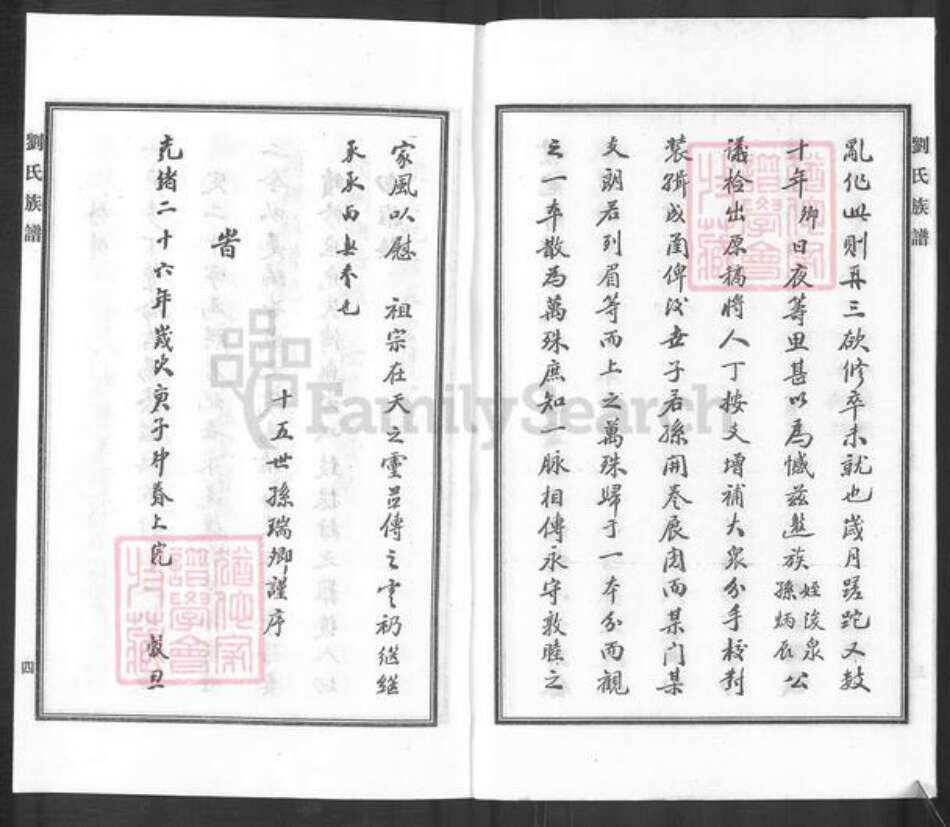 劉氏族譜
亂作此則再三欲修卒未就也歲月蹉跎又數
十年卿日夜籌思甚以為憾茲邀族姪浚泉孫炳辰公
議檢出原稿將人丁按支增補大衆分手校對
裝緝成圖俾後世子若孫開卷展閱而某门某
支朗若列眉等而上之萬殊歸于一本分而觀
之一本散為萬殊庶知一脈相傳永守敦睦之
家風以慰 祖宗在天之靈昌傳之雲礽继继
承承而無忝也
十五世孫瑞卿謹序
旹
光緒二十六年歲次庚子仲春上浣 穀旦
劉氏族譜
四
FamilySearch